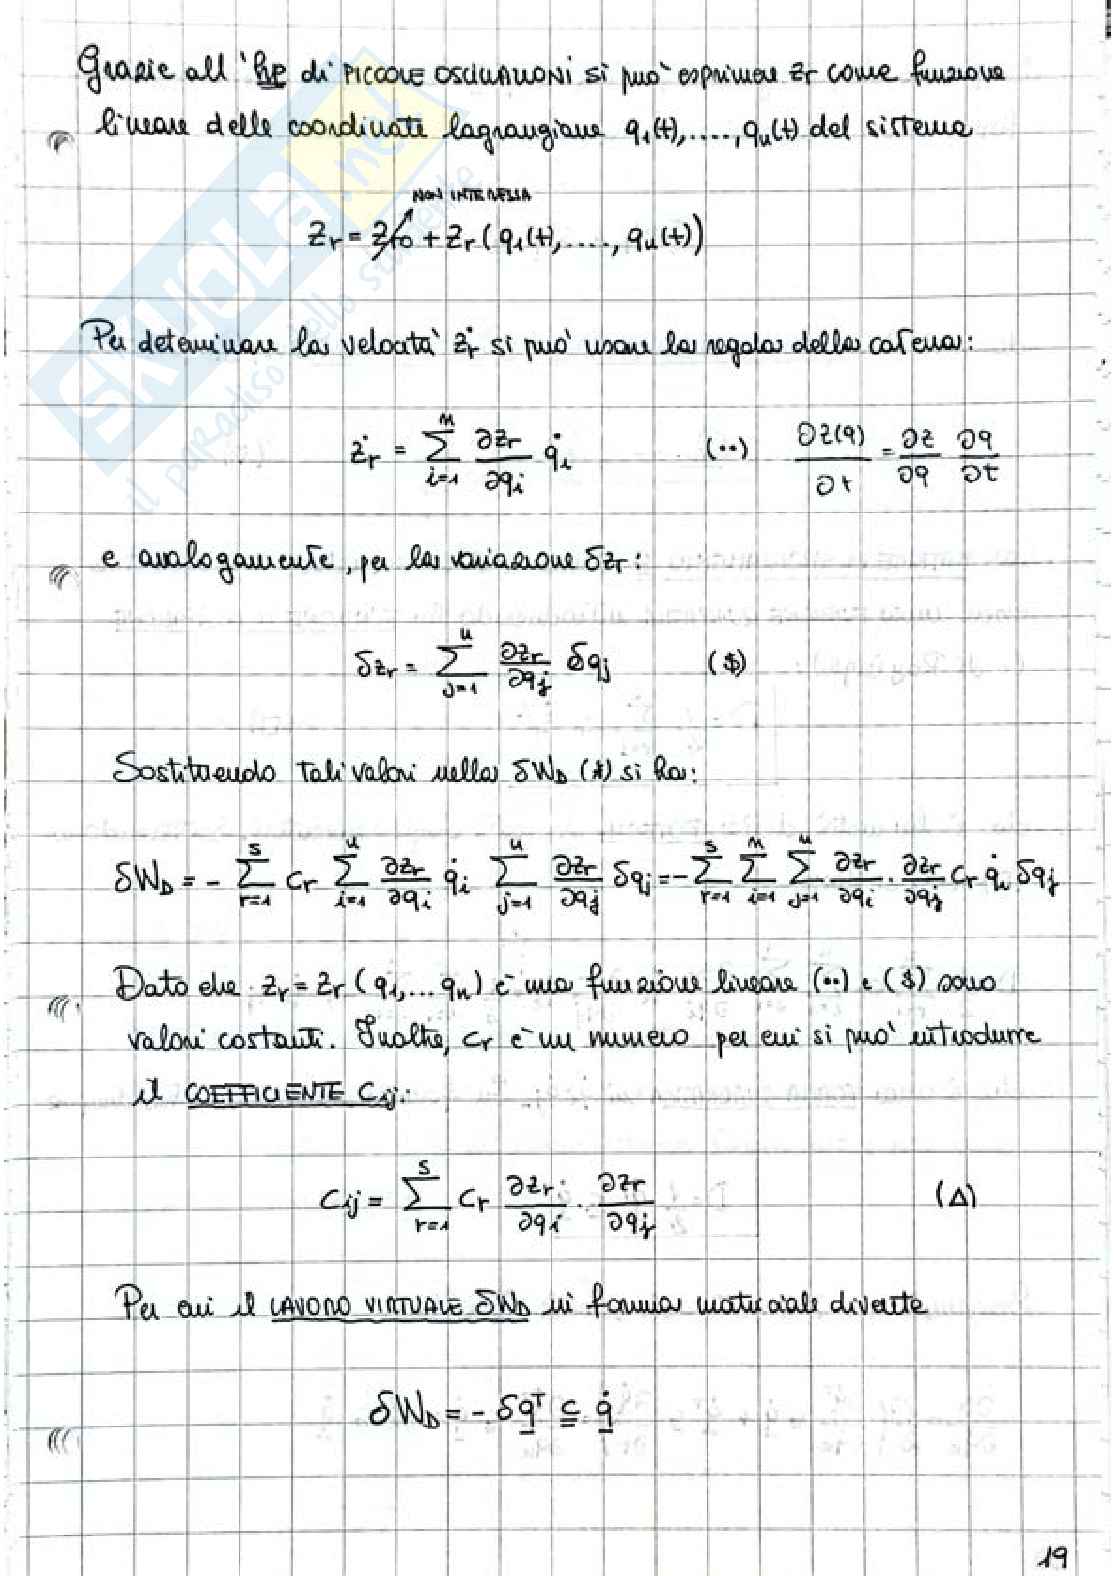 Grazie all'hp di PICCOLE OSCILLAZIONI si può esprimere zr come funzione
lineare delle coordinate lagrangiane q₁(t),....,qₙ(t) del sistema
NON INTERESSA
zᵣ = zᵣ₀ + zᵣ(q₁(t),....,qₙ(t))
Per determinare la velocità żᵣ si può usare la regola della catena:
żᵣ = Σᵢ₌₁ⁿ ∂zᵣ/∂qᵢ q̇ᵢ (••) ∂z(q)/∂t = ∂z/∂q ∂q/∂t
e analogamente, per la variazione δzᵣ:
δzᵣ = Σⱼ₌₁ⁿ ∂zᵣ/∂qⱼ δqⱼ ($)
Sostituendo tali valori nella δW_D (*) si ha:
δW_D = - Σᵣ₌₁ˢ cᵣ Σᵢ₌₁ⁿ ∂zᵣ/∂qᵢ q̇ᵢ Σⱼ₌₁ⁿ ∂zᵣ/∂qⱼ δqⱼ = - Σᵣ₌₁ˢ Σᵢ₌₁ⁿ Σⱼ₌₁ⁿ ∂zᵣ/∂qᵢ · ∂zᵣ/∂qⱼ cᵣ q̇ᵢ δqⱼ
Dato che zᵣ = zᵣ(q₁,... qₙ) è una funzione lineare (••) e ($) sono
valori costanti. Inoltre, cᵣ è un numero per cui si può introdurre
il COEFFICIENTE Cij:
Cij = Σᵣ₌₁ˢ cᵣ ∂zᵣ/∂qᵢ · ∂zᵣ/∂qⱼ (Δ)
Per cui il LAVORO VIRTUALE δW_D in forma matriciale diventa
δW_D = - δqᵀ c q̇
19
SKUOLA.net
il paradiso dello studente